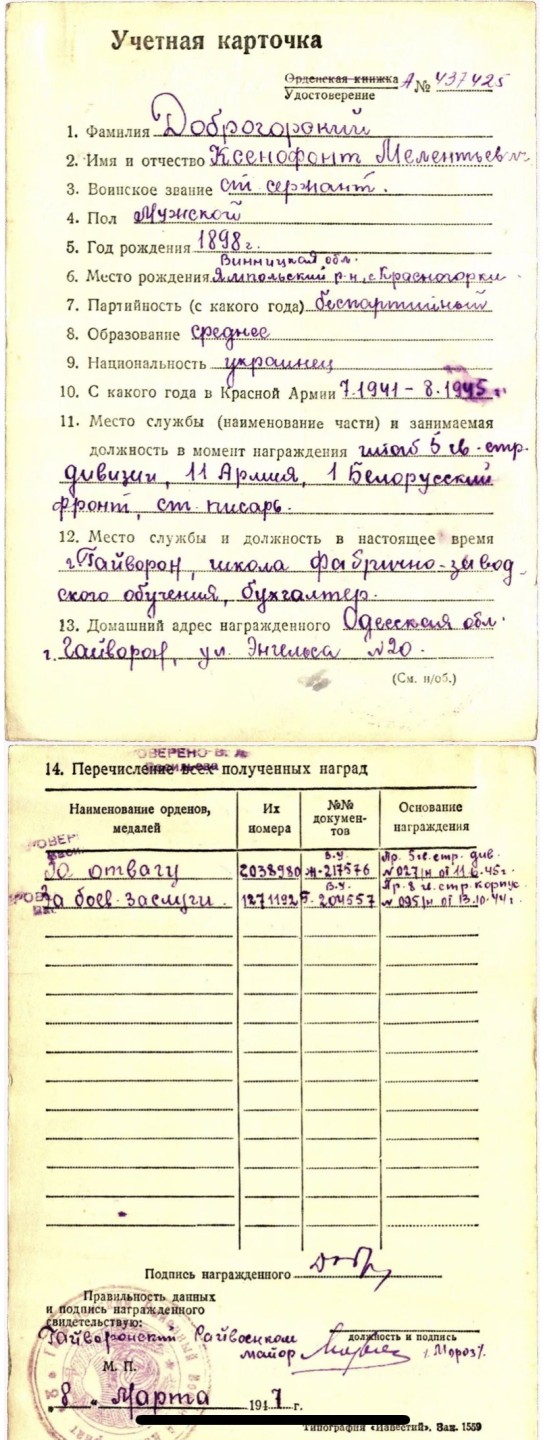 Учетная карточка
Орденская книжка
Удостоверение А № 437425
1. Фамилия Доброгорский
2. Имя и отчество Ксенофонт Мелентьевич
3. Воинское звание ст. сержант.
4. Пол Мужской
5. Год рождения 1898 г.
Винницкая обл.
6. Место рождения Ямпольский р-н, с. Красногорки
7. Партийность (с какого года) беспартийный
8. Образование среднее
9. Национальность украинец
10. С какого года в Красной Армии 7.1941 - 8.1945 г.
11. Место службы (наименование части) и занимаемая
должность в момент награждения штаб 5 гв. стр.
дивизии, 11 Армия, 1 Белорусский
фронт, ст. писарь.
12. Место службы и должность в настоящее время
г. Гайворон, школа фабрично-завод-
ского обучения, бухгалтер.
13. Домашний адрес награжденного Одесская обл.
г. Гайворон, ул. Энгельса №20.
(См. н/об.)
ОВЕРЕНО В. А.
14. Перечисление всех полученных наград
Наименование орденов, медалей
Их номера
№№ докумен-тов
Основание награждения
За отвагу 2038980 в.у. Ж-217576 Пр. 5 гв. стр. див. №027/н от 11.6.45г.
За боев. заслуги. 1271192 в.у. Б-204557 Пр. 8 гв. стр. корпус №095/н от 13.10.44г.
Подпись награжденного
Правильность данных
и подпись награжденного
свидетельствую:
Гайворонский Райвоенком
должность и подпись
майор /Мороз/.
М. П.
„8" Марта 1947 г.
Типография «Известий». Зак. 1559